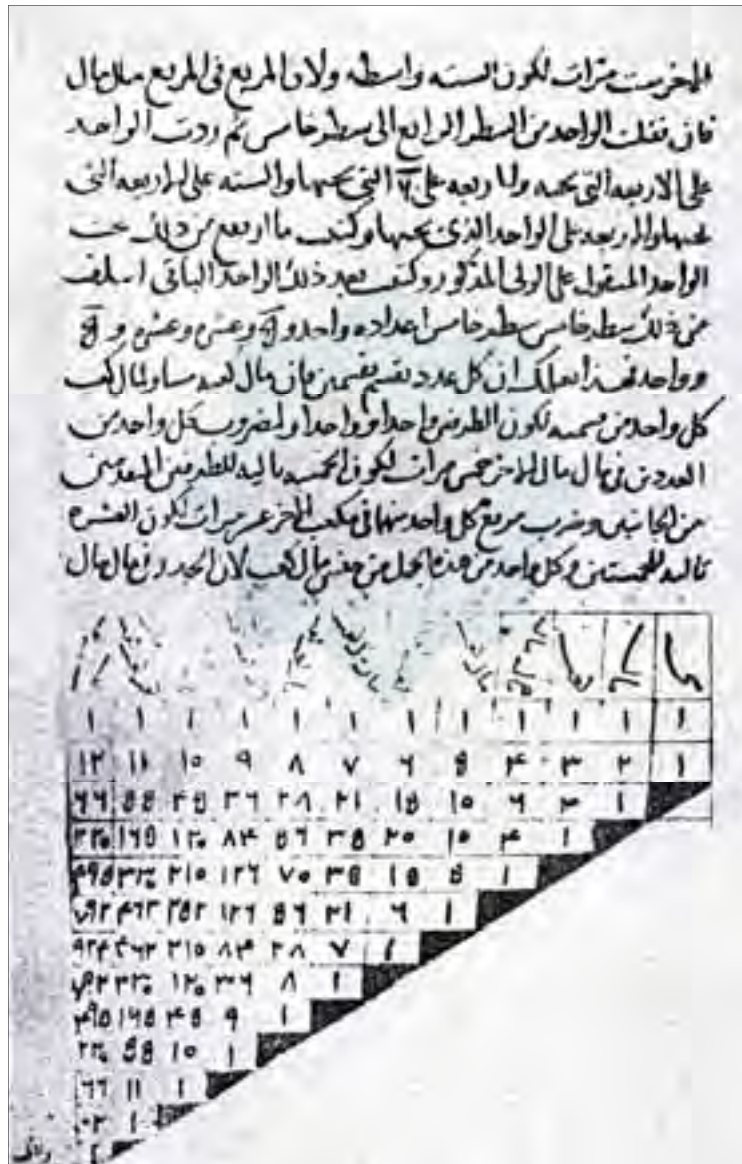 الاخر ست مرات لكون السته واسطه ولان المربع في المربع مال مال
فان نقلت الواحد من السطر الرابع الى سطر خامس ثم زدت الواحد
على الاربعه التي تحته والاربعه على التي تحتها والسته على الاربعه التي
تحتها والاربعه على الواحد الذي تحتها وكتبت ما ارتفع من ذلك تحت
الواحد المنقول على الولى المذكور وكتبت بعد ذلك الواحد الباقي ائتلف
من ذلك سطر خامس سطر خامس اعداده واحد و ٥ وعشره وعشره و ٥
وواحد فهذا يعلمك ان كل عدد يقسم بقسمين فان مال كعبه مساو لمال كعب
كل واحد من قسميه لكون الطرفين واحدا وواحدا ولمضروب كل واحد من
العددين في مال مال الاخر خمس مرات لكون الخمسه تاليه للطرفين المتقدمين
من الجانبين وضرب مربع كل واحد منهما في مكعب الاخر عشر مرات لكون العشره
تاليه للخمستين وكل واحد من هذه الجمل من جنس مال كعب لان الجذر في مال مال
١ ١ ١ ١ ١ ١ ١ ١ ١ ١ ١ ١
١ ٢ ٣ ٤ ٥ ٦ ٧ ٨ ٩ ١٠ ١١ ١٢
١ ٣ ٦ ١٠ ١٥ ٢١ ٢٨ ٣٦ ٤٥ ٥٥ ٦٦
١ ٤ ١٠ ٢٠ ٣٥ ٥٦ ٨٤ ١٢٠ ١٦٥ ٢٢٠
١ ٥ ١٥ ٣٥ ٧٠ ١٢٦ ٢١٠ ٣٣٠ ٤٩٥
١ ٦ ٢١ ٥٦ ١٢٦ ٢٥٢ ٤٦٢ ٧٩٢
١ ٧ ٢٨ ٨٤ ٢١٠ ٤٦٢ ٩٢٤
١ ٨ ٣٦ ١٢٠ ٣٣٠ ٧٩٢
١ ٩ ٤٥ ١٦٥ ٤٩٥
١ ١٠ ٥٥ ٢٢٠
١ ١١ ٦٦
١
١